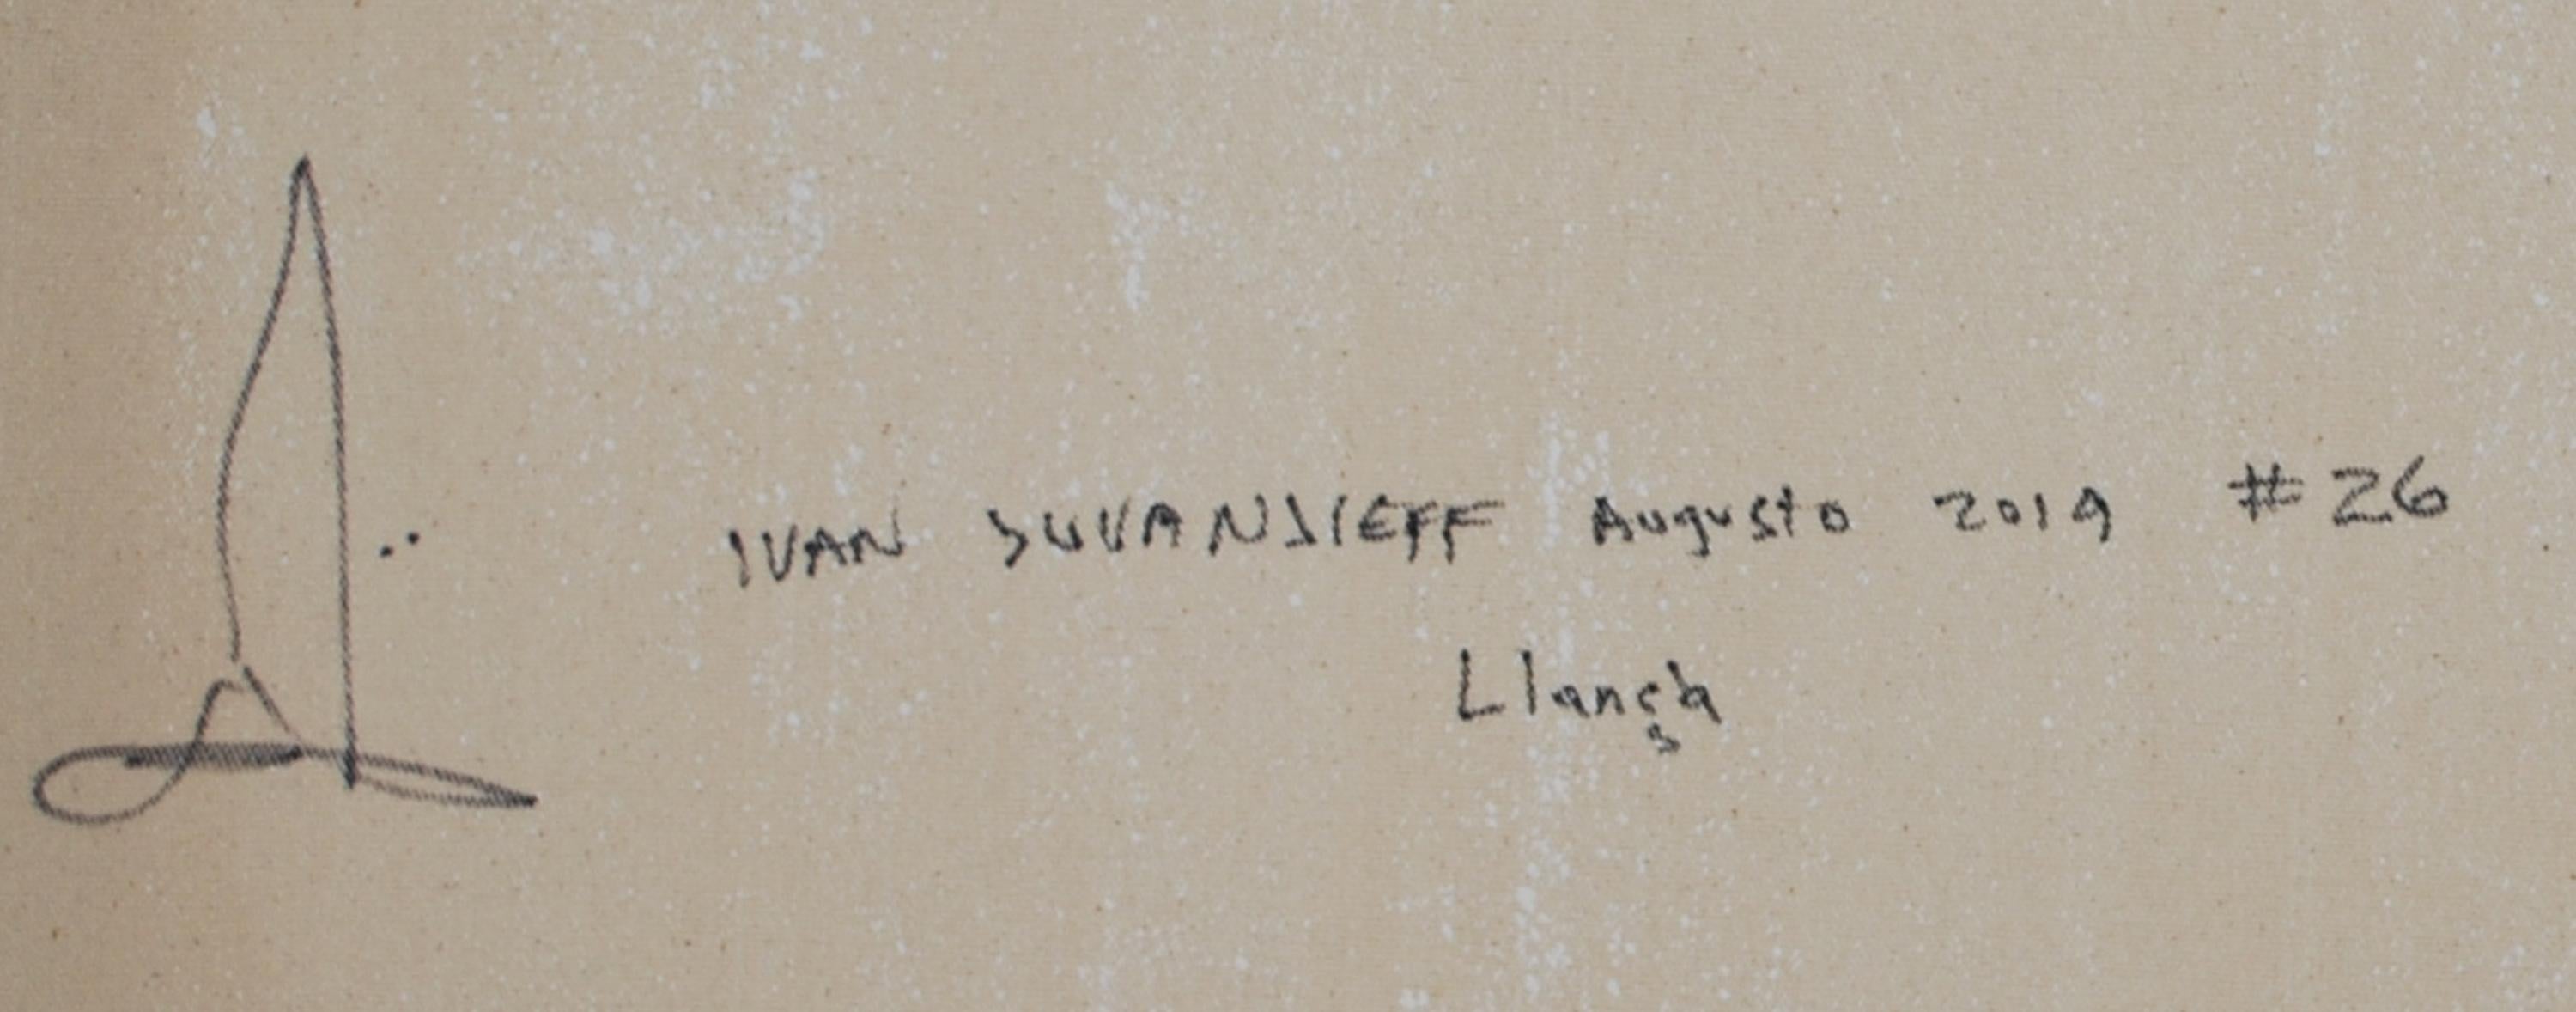 IVAN SUVANJIEFF Augusto 2019 #26
Llançà